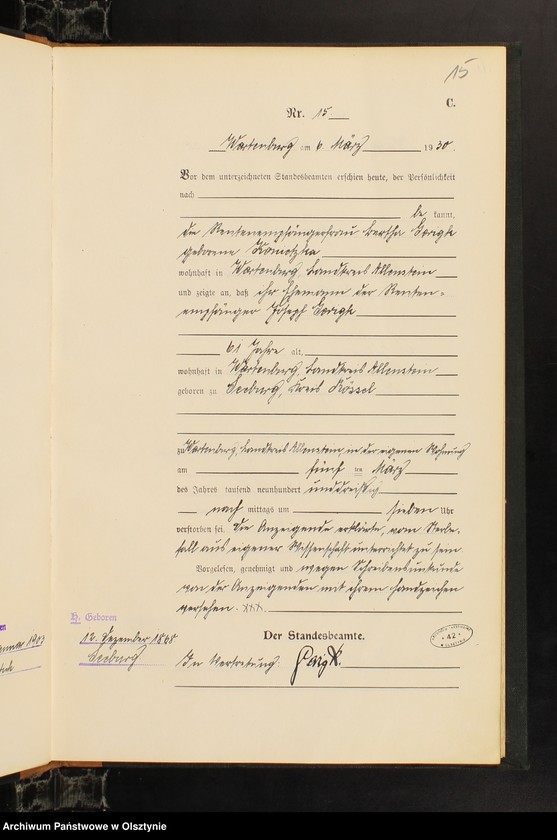 15
C.
Nr. 15
Wartenburg am 6. März 1930.
Vor dem unterzeichneten Standesbeamten erschien heute, der Persönlichkeit
nach
be kannt,
die Rentenempfängerfrau Bertha
geborene
wohnhaft in Wartenburg, Landkreis Allenstein
und zeigte an, daß ihr Ehemann der Renten-
empfänger Joseph
61 Jahre alt,
wohnhaft in Wartenburg, Landkreis Allenstein
geboren zu Seeburg, Kreis Rössel
zu Wartenburg, Landkreis Allenstein, in der eigenen Wohnung
am fünf ten März
des Jahres tausend neunhundert unddreißig
nach mittags um sieben Uhr
verstorben sei. Die Anzeigende erklärte, vom Sterbe-
fall aus eigener Wissenschaft unterrichtet zu sein
Vorgelesen, genehmigt und wegen Schreibensunkunde
von der Anzeigenden mit ihrem Handzeichen
versehen. XXX.
Der Standesbeamte.
In Vertretung
H. Geboren
12. Dezember 1868
Seeburg
42
Archiwum Państwowe w Olsztynie